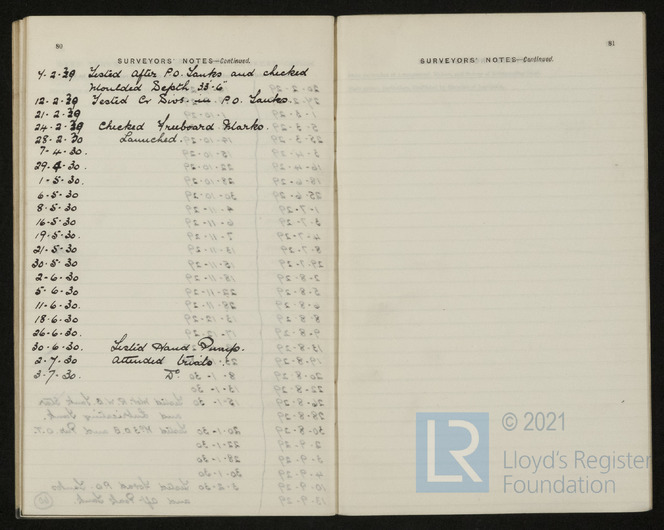 80
SURVEYORS' NOTES—Continued.
7-2-29 Tested After P.O. Tanks and checked
Moulded Depth 35'-6"
12-2-29 Tested Cr Divs. in P.O. Tanks.
21-2-29
24-2-29 Checked Freeboard Marks.
28-2-30 Launched.
7-4-30.
29-4-30.
1-5-30.
6-5-30
8-5-30
16-5-30
19-5-30.
21-5-30
30-5-30
2-6-30
5-6-30
11-6-30.
18-6-30
26-6-30.
30-6-30. Tested Hand Pump.
2-7-30 Attended trials.
3-7-30. Do.
81
SURVEYORS' NOTES—Continued.
© 2021
LR
Lloyd's Register
Foundation